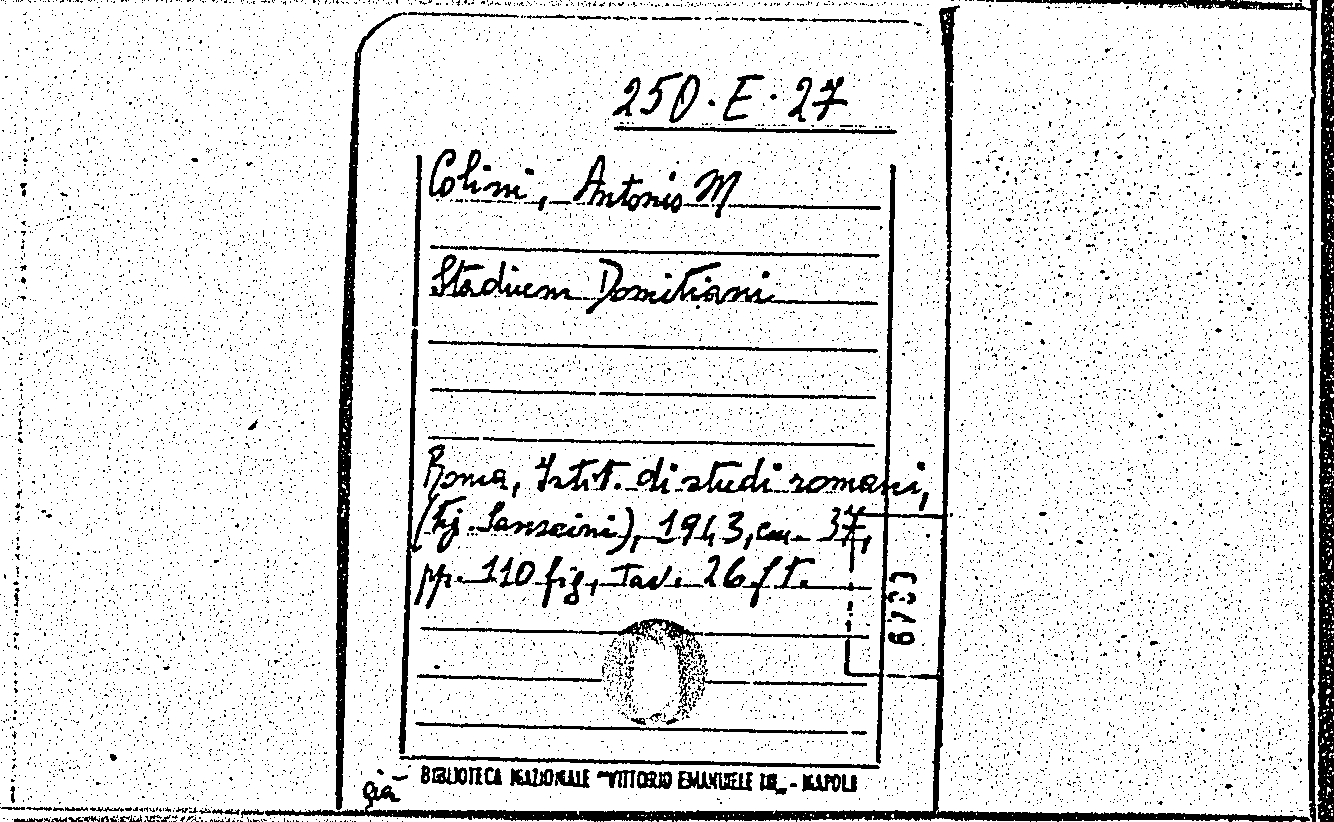 250.E.27
Colini, Antonio M
Stadium Domitiani
Roma, Istit. di studi romani,
(Tip. Sansaini), 1943, cm. 37,
pp. 110 fig., tav. 26 f.t.
BIBLIOTECA NAZIONALE "VITTORIO EMANUELE III" - NAPOLI
già